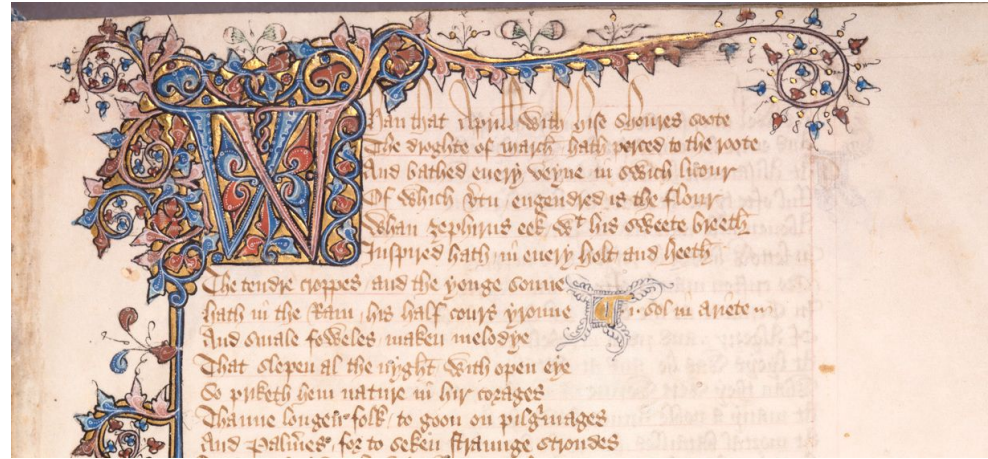 Whan that Aprill with hise shoures soote
The droghte of march hath perced to the roote
And bathed euery veyne in swich licour
Of which vertu engendred is the flour
Whan zephirus eek wt his sweete breeth
Inspired hath in euery holt and heeth
The tendre croppes / and the yonge sonne
hath in the Ram / his half cours yronne
.i. sol in ariete
And smale foweles / maken melodye
That slepen al the nyght with open eye
So priketh hem nature in hir corages
Thanne longen folk / to goon on pilgrimages
And Palmeres / for to seken straunge strondes